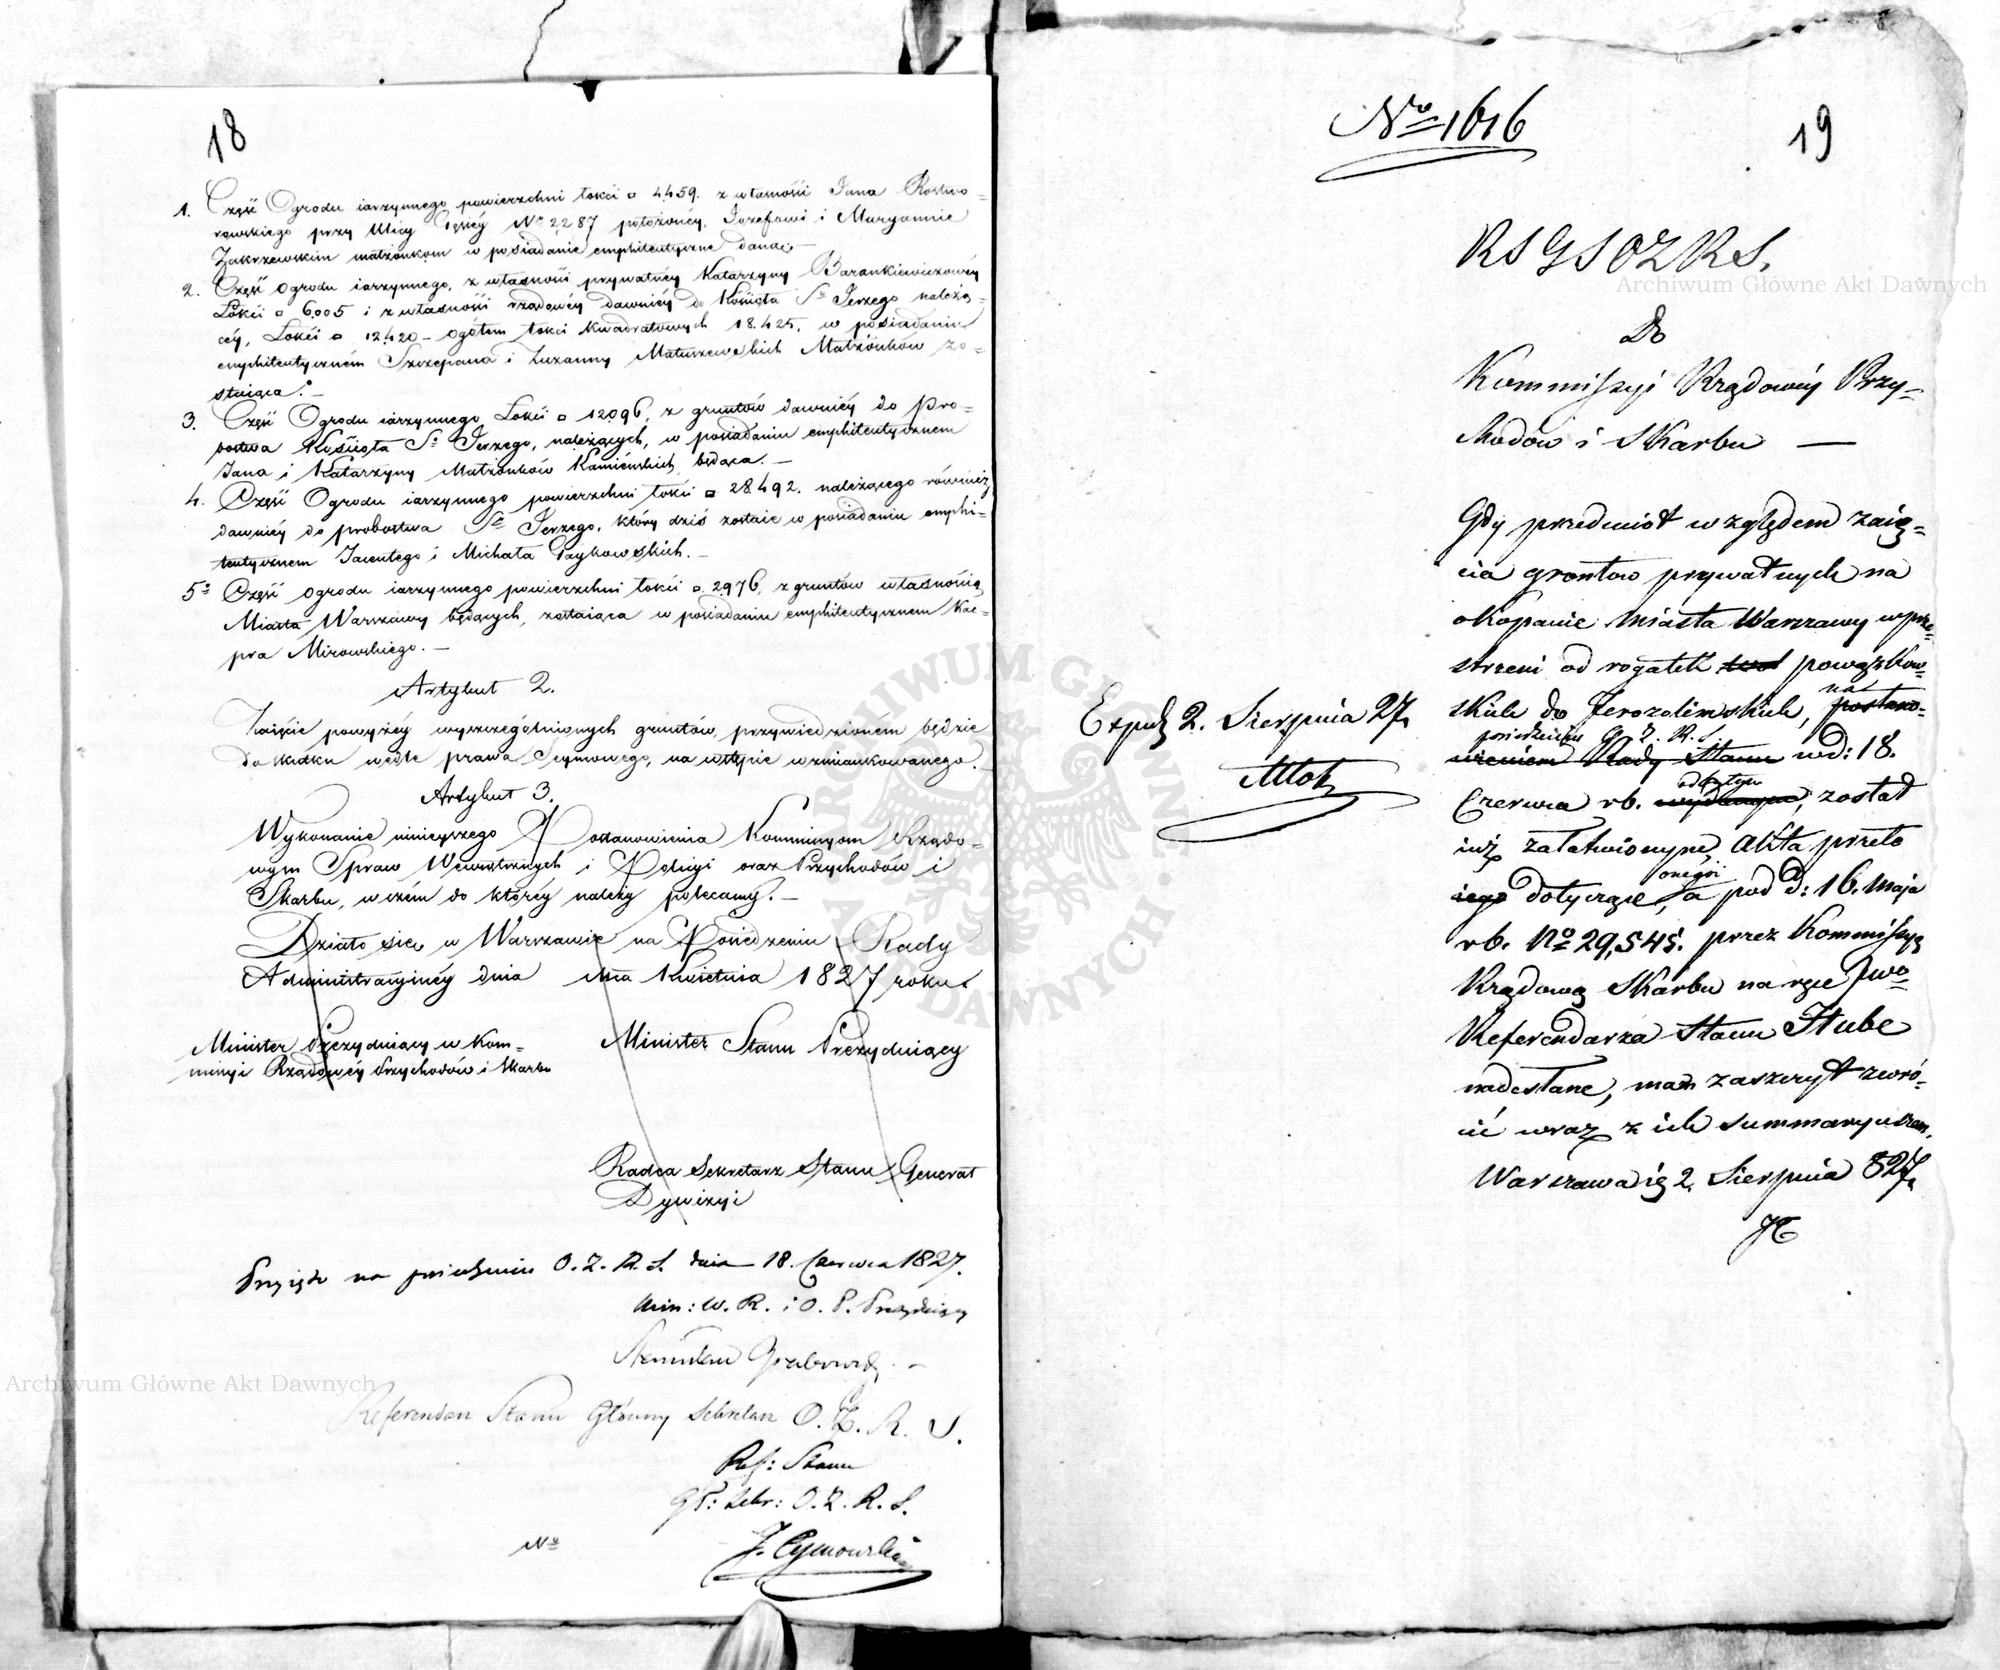 18
1. Część Ogrodu iarzynnego powierzchni łokci □ 4459. z własności Jana Rostwo-
rowskiego przy Ulicy Gęsiéy Nro 2287 położonéy, Jozefowi i Maryannie
Zakrzewskim małżonkom w posiadanie emphiteutyczne danéj.—
2. Część Ogrodu iarzynnego, z własności prywatnéy Katarzyny Barankiewiczowéy
Łokci □ 6,005 i z własności rządowéy dawniéy do Kościoła Sgo Jerzego należą-
céy, Łokci □ 12420 – ogółem łokci kwadratowych 18.425, w posiadaniu
emphiteutyczném Szczepana i Zuzanny Matuszewskich Małżonków zo-
staiąca.—
3. Część Ogrodu iarzynnego Łokci □ 12096, z gruntów dawniéy do Pro-
bostwa Kościoła Sgo Jerzego, należących, w posiadaniu emphiteutycznem
Jana i Katarzyny Małżonków Kamieńskich będąca.—
4. Część Ogrodu iarzynnego powierzchni łokci □ 28492. należącego również
dawniéy do probostwa Sgo Jerzego, który dziś zostaie w posiadaniu emphi-
teutycznem Jacentego i Michała Paykowskich.—
5o Część ogrodu iarzynnego powierzchni łokci □ 2976, z gruntów własnością
Miasta Warszawy będących, zostaiąca w posiadaniu emphiteutycznem Kac-
pra Mirowskiego.—
Artykuł 2.
Zaięcie powyżéy wyszczególnionych gruntów, przywiedzionem będzie
do skutku wedle prawa Seymowego, na wstępie wzmiankowanego.
Artykuł 3.
Wykonanie ninieyszego Postanowienia Kommissyom Rządo-
wym Spraw Wewnętrznych i Policyi oraz Przychodów i
Skarbu, w czém do któréy należy polecamy.—
Działo się w Warszawie na Posiedzeniu Rady
Administracyinéy dnia Kwietnia 1827 roku
Minister Prezyduiący w Kom-
missyi Rządowéy Przychodów i Skarbu
Minister Stanu Prezyduiący
Radca Sekretarz Stanu Generał
Dywizyi
Przyięto na posiedzeniu O. Z. R. S. dnia 18. Czerwca 1827.
Min: W. R. i O. P. Prezyduiący
Stanisław Grabowski
Referendarz Stanu Główny Sekretarz O. Z. R. S.
Ref: Stanu
Gł: Sekr: O. Z. R. S.
No
19
Nro 1616
RSGSOZRS.
Do
Kommissyi Rządowéy Przy-
chodów i Skarbu —
Gdy przedmiot względem zaię-
cia gruntów prywatnych na
okopanie Miasta Warszawy w prze-
strzeni od rogatek powązkow-
skich do Jerozolimskich, na postano-
posiedzeniu O. Z. R. S.
wieniem Rady Stanu w d: 18.
odbytym
Czerwca rb. wydanym, został
iuż załatwionym, Akta przeto
onegoż
iego dotyczące, a pod d: 16. Maja
rb. No 29,545. przez Kommissyą
Rządową Skarbu na ręce Jwo
Referendarza Stanu Hube
nadesłane, mam zaszczyt zwró-
cić wraz z ich summaryuszem.
Warszawa dnia 2. Sierpnia 827
Exped 2. Sierpnia 27
Archiwum Główne Akt Dawnych
Archiwum Główne Akt Dawnych
ARCHIWUM GŁÓWNE AKT DAWNYCH